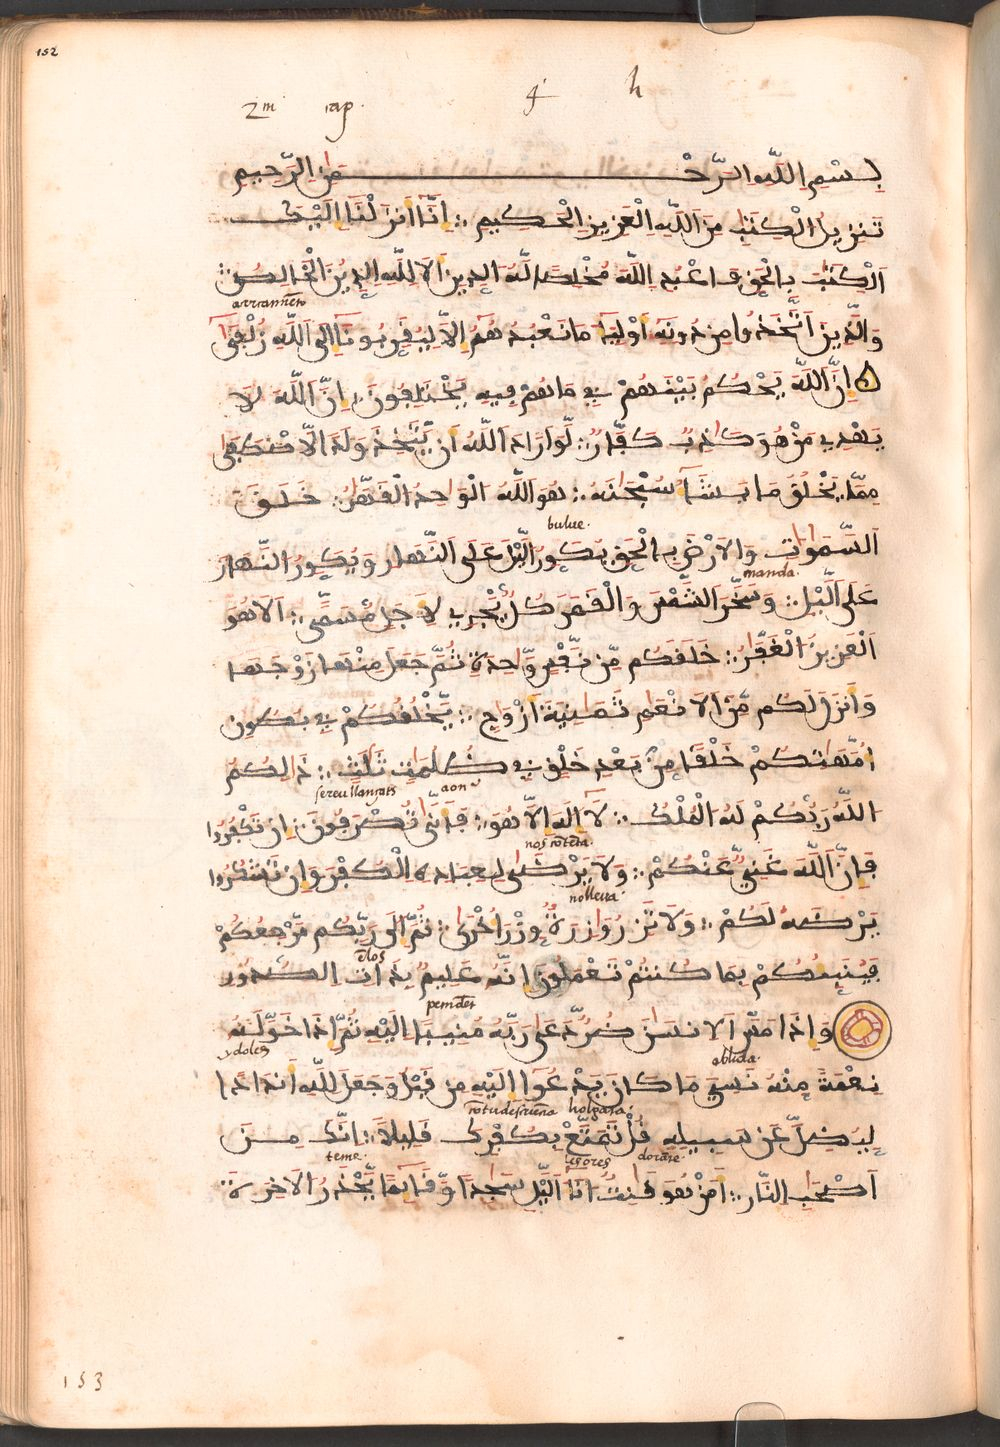 152
2m cap. 4 h
بسم الله الرحمن الرحيم
تنزيل الكتب من الله العزيز الحكيم انا انزلنا اليك
الكتب بالحق فاعبد الله مخلصا له الدين الا لله الدين الخالص
arrament
والذين اتخذوا من دونه اولياء ما نعبدهم الا ليقربونا الى الله زلفى
ان الله يحكم بينهم في ما هم فيه يختلفون ان الله لا
يهدي من هو كاذب كفار لو اراد الله ان يتخذ ولدا لاصطفى
مما يخلق ما يشاء سبحنه هو الله الواحد القهار خلق
bulue.
السموات والارض بالحق يكور اليل على النهار ويكور النهار
manda.
على اليل وسخر الشمس والقمر كل يجري لاجل مسمى الا هو
العزيز الغفر خلقكم من نفس واحدة ثم جعل منها زوجها
وانزل لكم من الانعم ثمنية ازوج يخلقكم في بطون
امهتكم خلقا من بعد خلق في ظلمت ثلث ذلكم
aon
الله ربكم له الملك لا اله الا هو فانى تصرفون ان تكفروا
فان الله غني عنكم ولا يرضى لعباده الكفر وان تشكروا
nolleua.
يرضه لكم ولا تزر وازرة وزر اخرى ثم الى ربكم مرجعكم
elos
فينبئكم بما كنتم تعملون انه عليم بذات الصدور
واذا مس الانسن ضر دعا ربه منيبا اليه ثم اذا خوله
ydoles abluda.
نعمة منه نسي ما كان يدعوا اليه من قبل وجعل لله اندادا
holgara.
ليضل عن سبيله قل تمتع بكفرك قليلا انك من
teme. esores dorare.
اصحب النار امن هو قنت اناء اليل سجدا وقائما يحذر الاخرة
153